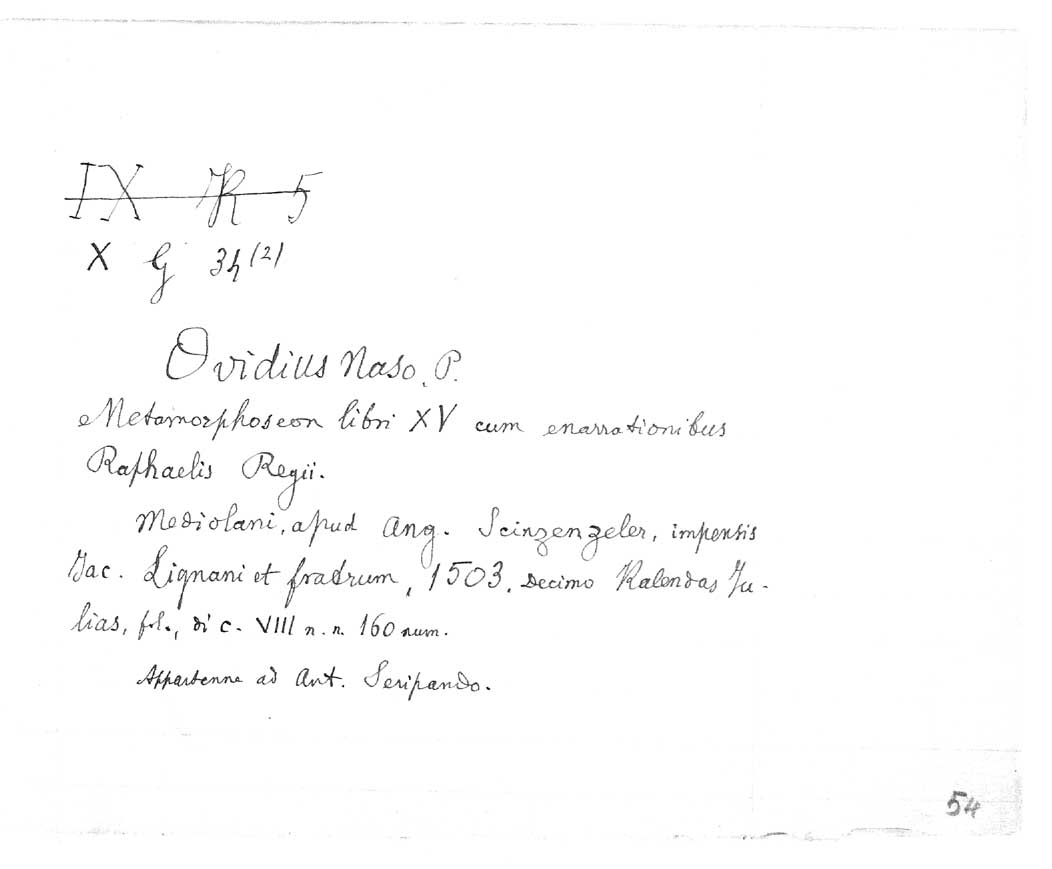 IX R 5
X G 34 (2)
Ovidius Naso, P.
Metamorphoseon libri XV cum enarrationibus
Raphaelis Regii.
Mediolani, apud Ang. Scinzenzeler, impensis
Jac. Lignani et fratrum, 1503, Decimo Kalendas Ju-
lias, fol., di c. VIII n. n. 160 num.
Appartenne ad Ant. Seripando.
54